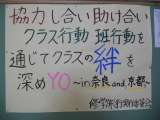 協力し合い助け合い
クラス行動 班行動を
通じてクラスの絆を
深めYO ~in奈良and京都~
修学旅行実行委員会